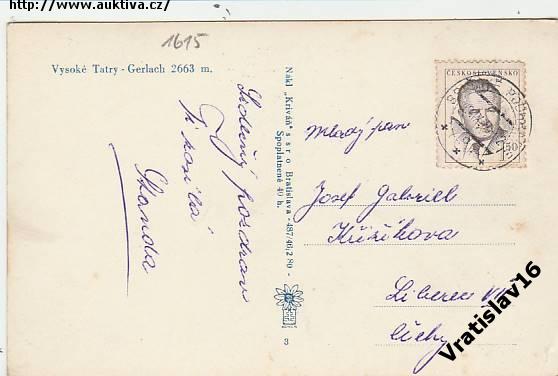 http://www.auktiva.cz/
1615
Vysoké Tatry - Gerlach 2663 m.
Srdečný pozdrav
Ti posílá
Standa
Nákl. „Kriváň" s s r o Bratislava - 487/46;280 -
Spoplatnené 40 h.
3
ČESKOSLOVENSKO
1·50
Mladý pan
Josef Gabriel
Křižíkova
Liberec VII
Čechy
Vratislav16